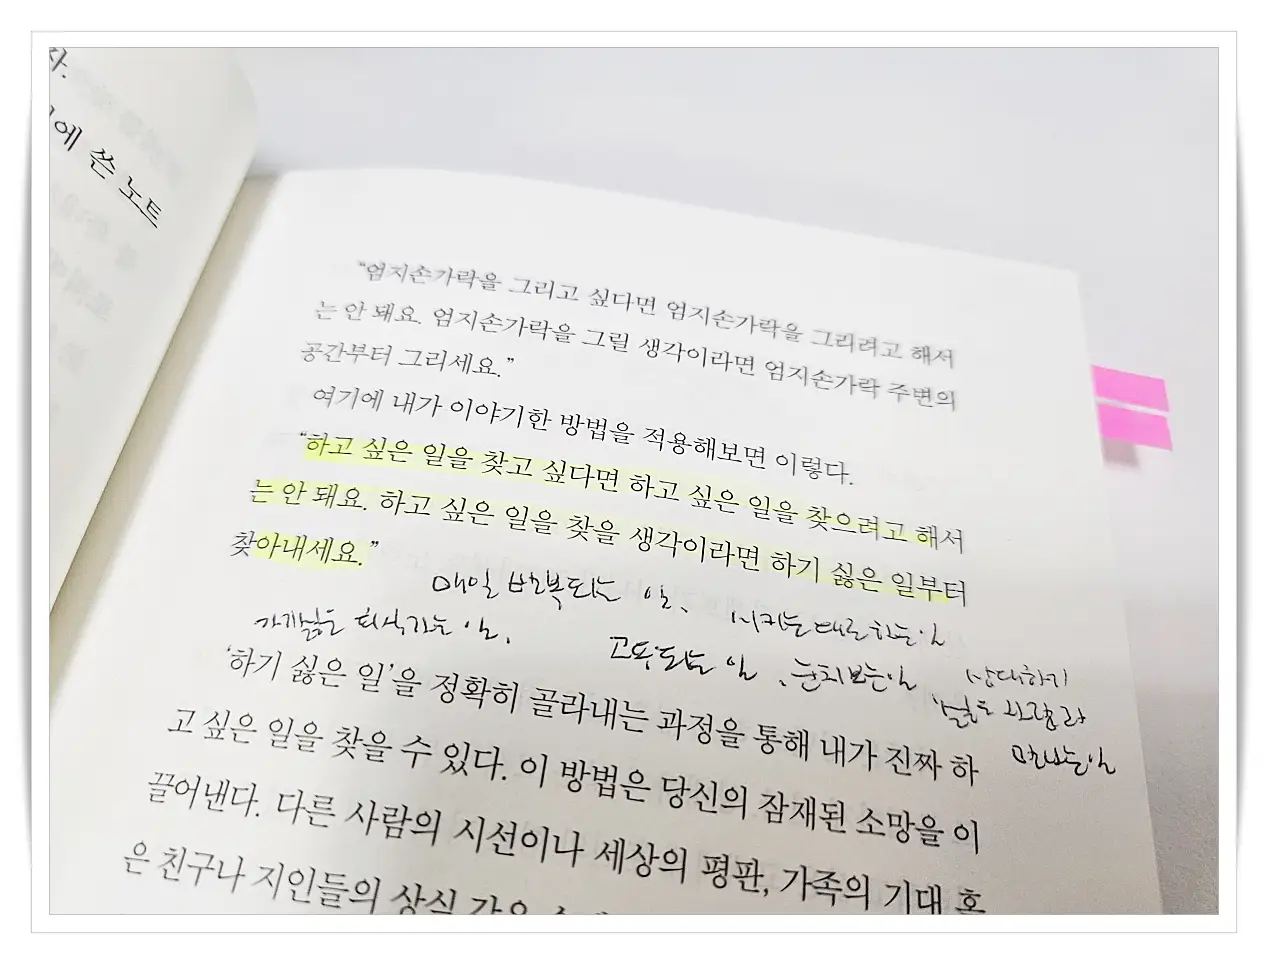 에 쓴 노트
“엄지손가락을 그리고 싶다면 엄지손가락을 그리려고 해서
는 안 돼요. 엄지손가락을 그릴 생각이라면 엄지손가락 주변의
공간부터 그리세요.”
여기에 내가 이야기한 방법을 적용해보면 이렇다.
“하고 싶은 일을 찾고 싶다면 하고 싶은 일을 찾으려고 해서
는 안 돼요. 하고 싶은 일을 찾을 생각이라면 하기 싫은 일부터
찾아내세요.”
매일 반복되는 일, 시키는대로 하는 일
가기싫은 회식가는 일, 고통되는 일, 눈치보는 일, 상대하기
싫은 사람과
만나는 일
‘하기 싫은 일’을 정확히 골라내는 과정을 통해 내가 진짜 하
고 싶은 일을 찾을 수 있다. 이 방법은 당신의 잠재된 소망을 이
끌어낸다. 다른 사람의 시선이나 세상의 평판, 가족의 기대 혹
은 친구나 지인들의 상식 같은